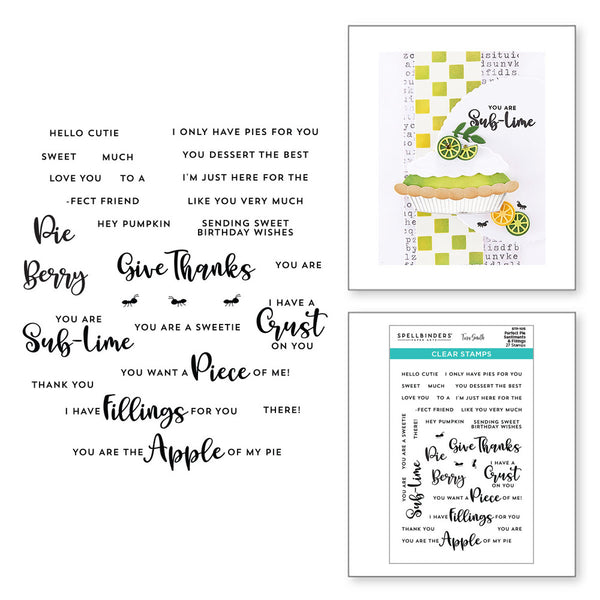 HELLO CUTIE I ONLY HAVE PIES FOR YOU
SWEET MUCH YOU DESSERT THE BEST
LOVE YOU TO A I'M JUST HERE FOR THE
-FECT FRIEND LIKE YOU VERY MUCH
HEY PUMPKIN SENDING SWEET
BIRTHDAY WISHES
Pie
Berry Give Thanks YOU ARE
YOU ARE
Sub-lime
YOU ARE A SWEETIE
I HAVE A
Crust
ON YOU
YOU WANT A Piece OF ME!
THANK YOU
I HAVE Fillings FOR YOU THERE!
YOU ARE THE Apple OF MY PIE
YOU ARE
Sub-lime
SPELLBINDERS
PAPER ARTS
Tina Smith
Perfect Pie
Sentiments
& Fillings
27 Stamps
CLEAR STAMPS
HELLO CUTIE I ONLY HAVE PIES FOR YOU
SWEET MUCH YOU DESSERT THE BEST
LOVE YOU TO A I'M JUST HERE FOR THE
-FECT FRIEND LIKE YOU VERY MUCH
HEY PUMPKIN SENDING SWEET
BIRTHDAY WISHES
YOU ARE A SWEETIE
THERE!
Pie
Give Thanks
Berry
I HAVE A
Crust
ON YOU
YOU ARE
Sub-lime
YOU WANT A Piece OF ME!
I HAVE Fillings FOR YOU
THANK YOU YOU ARE
YOU ARE THE Apple OF MY PIE